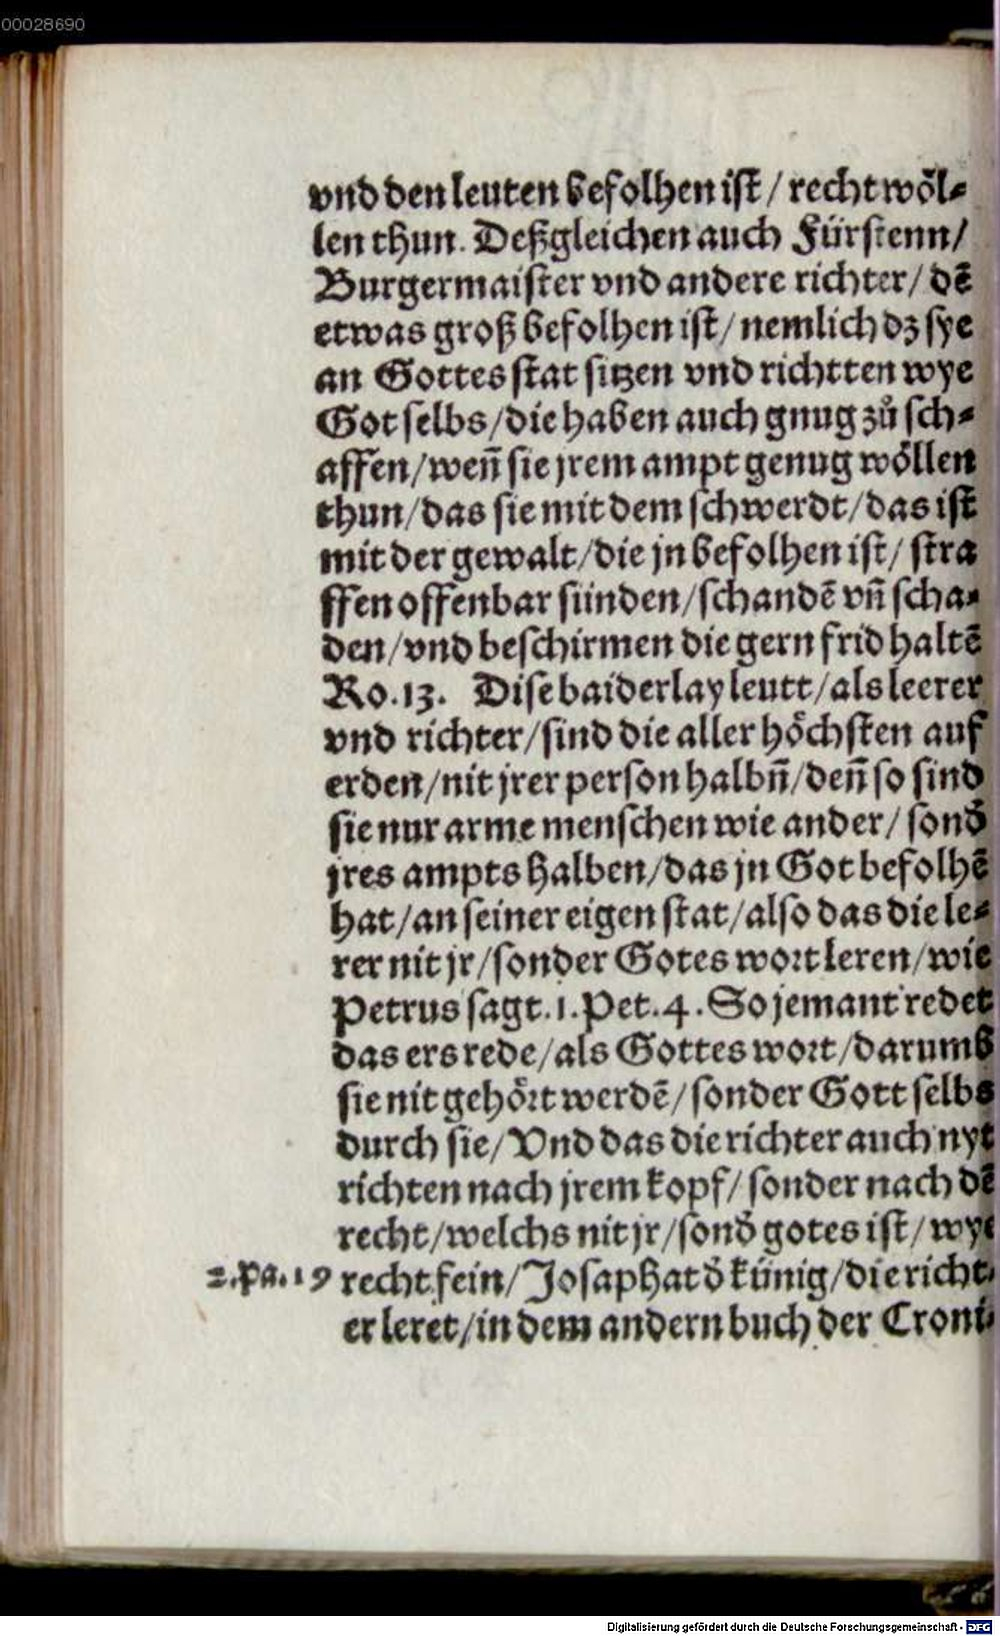 00028690
vnd den leuten befolhen ist / recht wöl⸗
len thun. Deßgleichen auch Fürstenn /
Burgermaister vnd andere richter / dē
etwas groß befolhen ist / nemlich dz sye
an Gottes stat sitzen vnd richtten wye
Got selbs / die haben auch gnug zů sch⸗
affen / weñ sie jrem ampt genug wöllen
thun / das sie mit dem schwerdt / das ist
mit der gewalt / die jn befolhen ist / stra
ffen offenbar sünden / schandē vñ scha⸗
den / vnd beschirmen die gern frid haltē
Ro. 13. Dise baiderlay leutt / als leerer
vnd richter / sind die aller höchsten auf
erden / nit jrer person halbñ / deñ so sind
sie nur arme menschen wie ander / sond̛
jres ampts halben / das jn Got befolhē
hat / an seiner eigen stat / also das die le⸗
rer nit jr / sonder Gotes wort leren / wie
Petrus sagt. 1. Pet. 4. So jemant redet
das ers rede / als Gottes wort / darumb
sie nit gehört werdē / sonder Gott selbs
durch sie / Vnd das die richter auch nyt
richten nach jrem kopf / sonder nach dē
recht / welchs nit jr / sond̛ gotes ist / wye
2. Pa. 19 recht fein / Josaphat d̛ künig / die richt⸗
er leret / in dem andern buch der Croni⸗
Digitalisierung gefördert durch die Deutsche Forschungsgemeinschaft - DFG